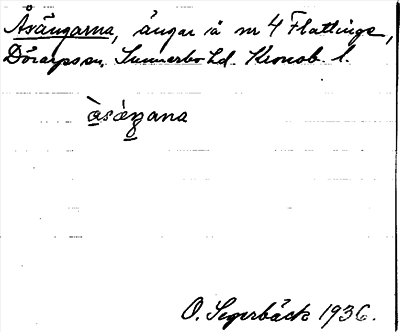 Åsängarna, ängar i å nr 4 Flattinge,
Dörarps sn, Sunnerbo hd. Kronob. l.
O. Segerbäck 1936.